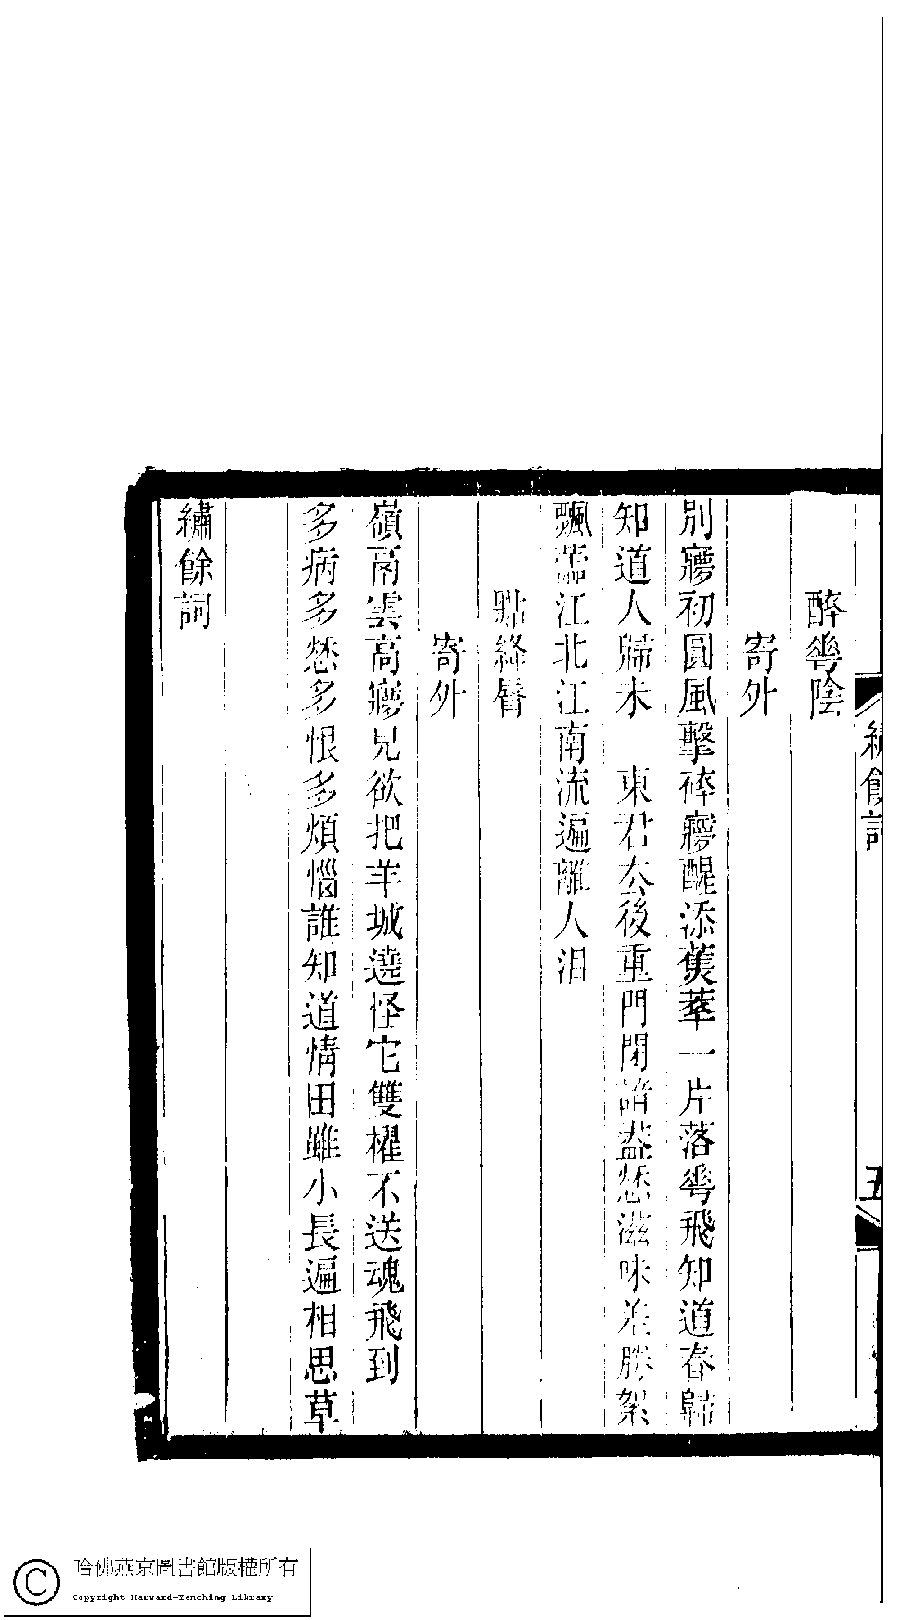 繡餘詞
五
醉𠌶陰
寄外
別㝱初圓風擊碎㝱醒添蕉萃一片落𠌶飛知道春歸
知道人歸未　東君厺後重門閉諳盡愁滋味差勝絮
飄蘦江北江南流遍離人泪
點絳脣
寄外
嶺鬲雲高㝱兒欲把羊城遶怪它雙櫂不送魂飛到
多病多愁多恨多煩惱誰知道情田雖小長遍相思草
繡餘詞
哈佛燕京圖書館版權所有
Copyright Harvard-Yenching Library